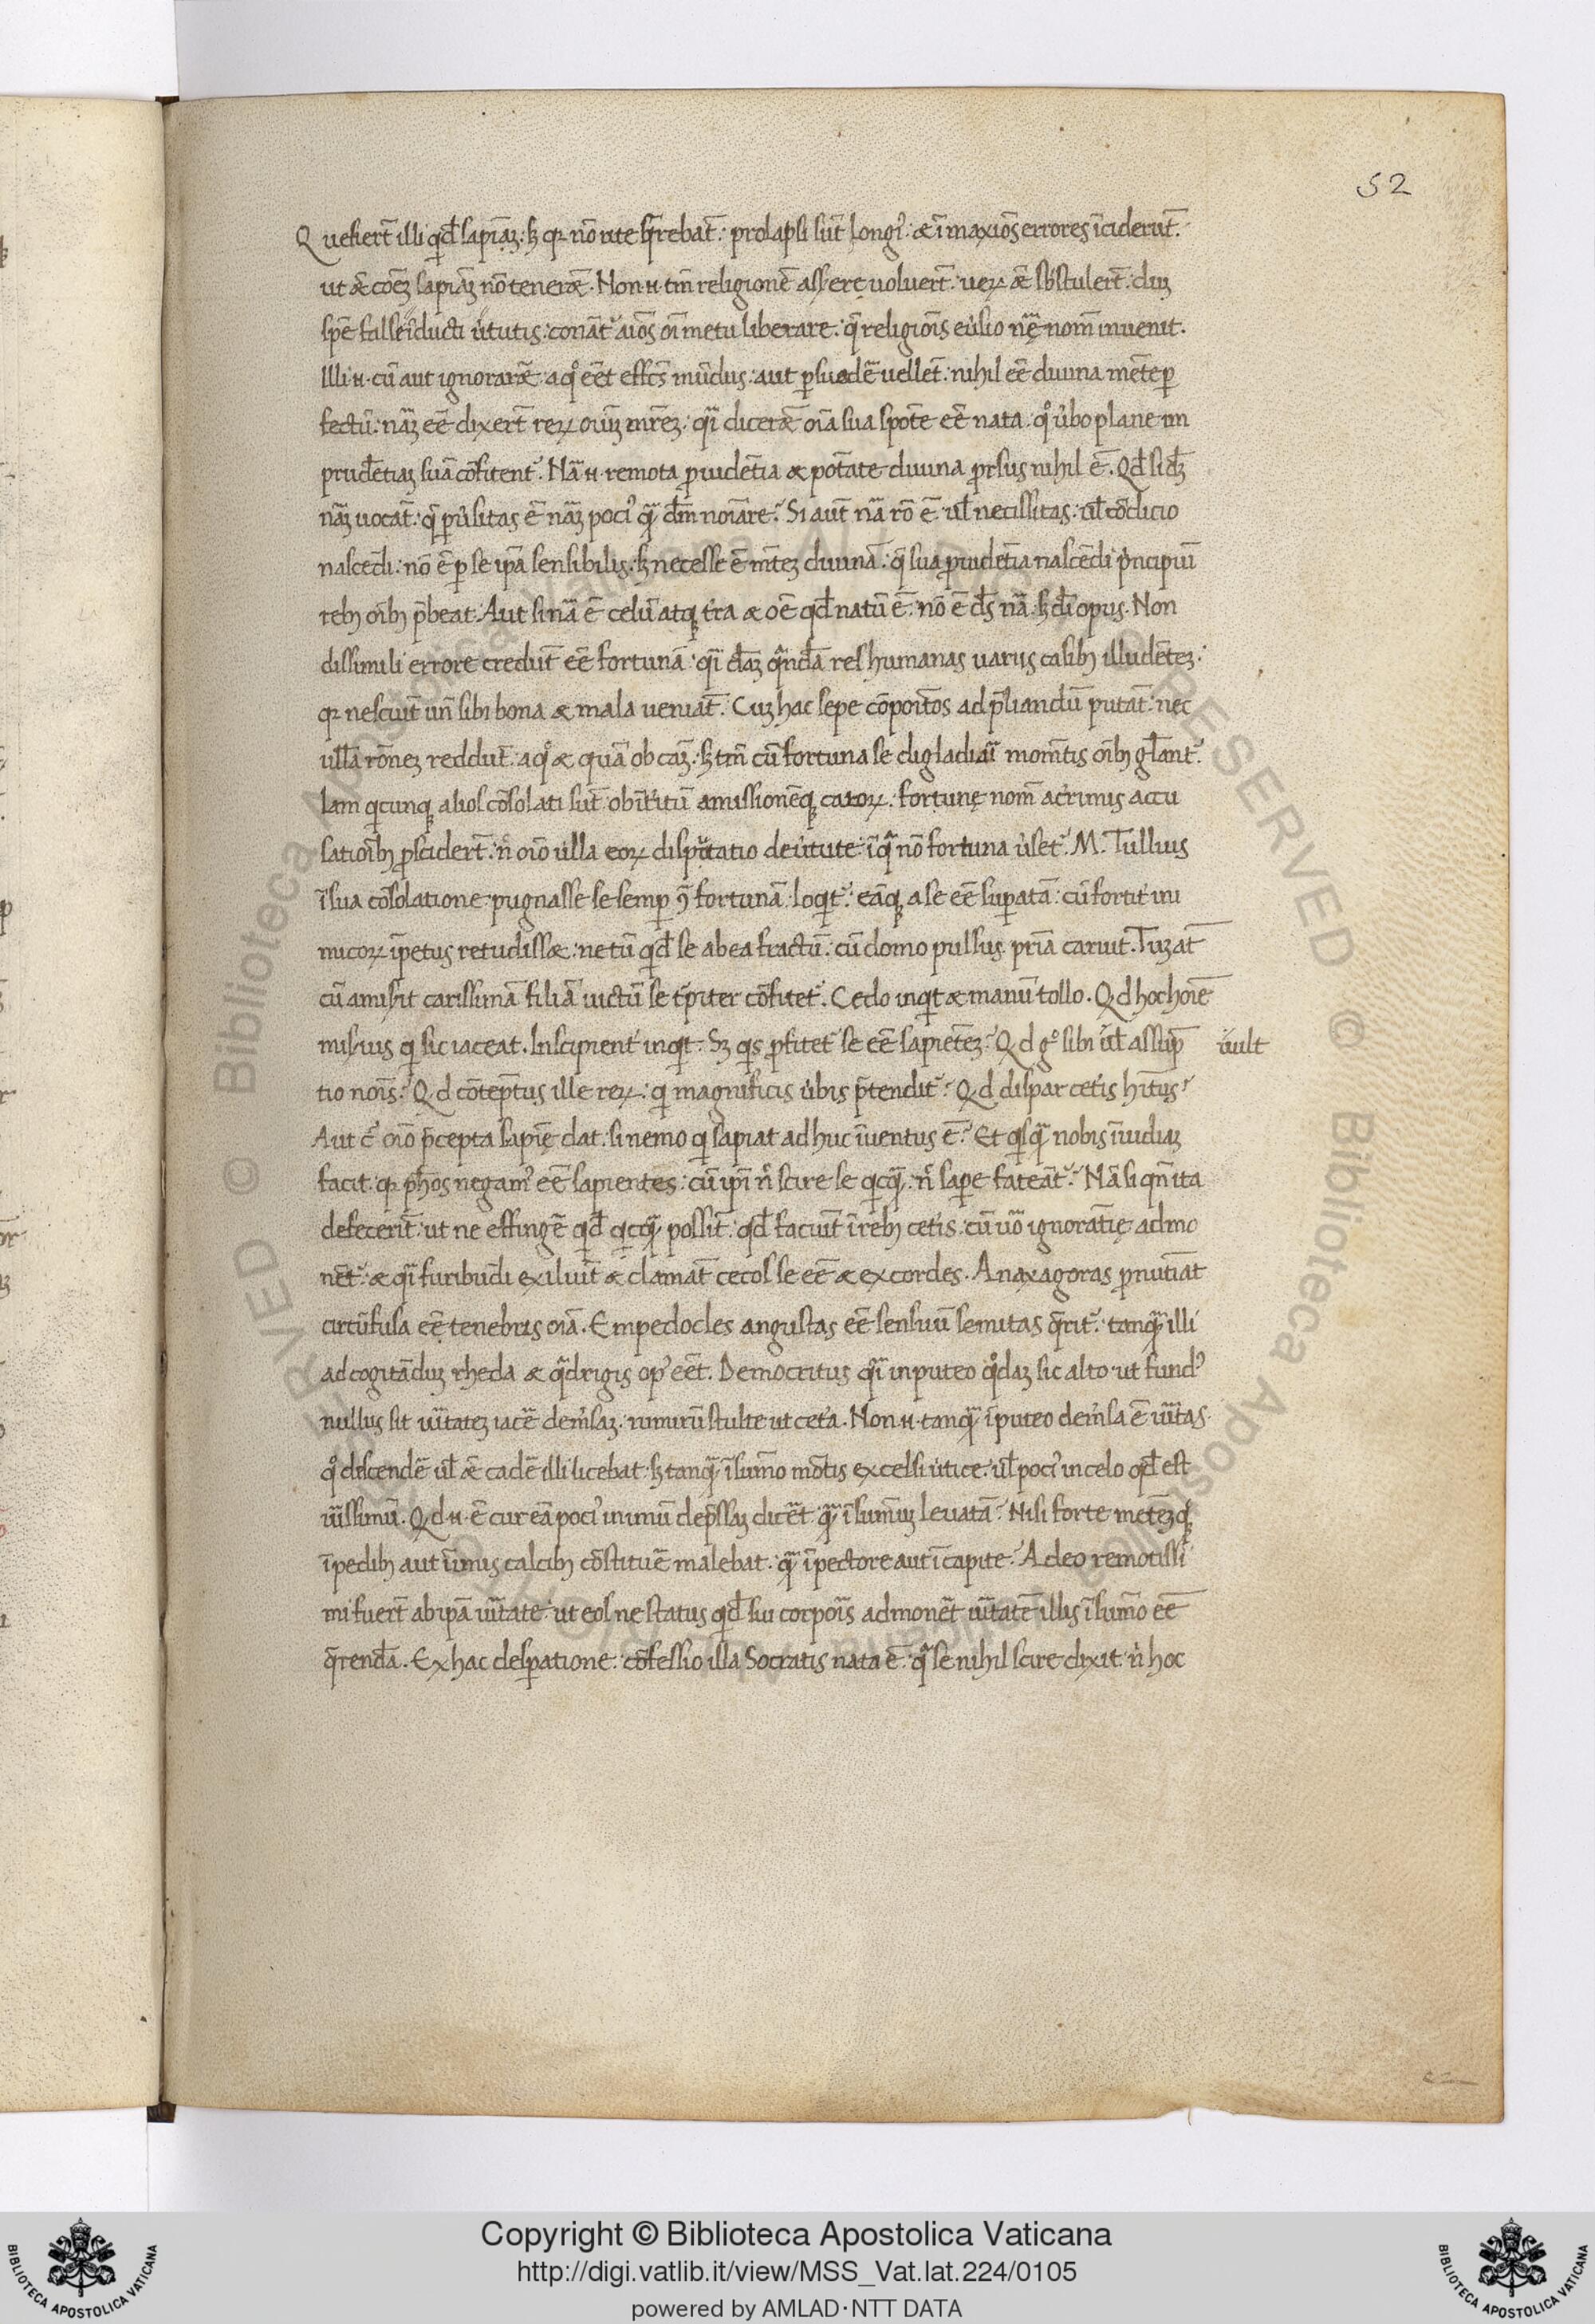 52
Quesiert̄ illi qd̄ sapiāz: sꝫ qꝛ nō rite q̄rebat̄: prolapsi sūt longꝰ: & ī maxiōs errores īciderūt.
ut & cōeꝫ sapiāꝫ nō tener&. Non .n. tm̄ religionē asserere voluert̄: veꝝ &̄ sbstulert̄: duꝫ
spē false īducti ūtutis: conāt̄ aīos oī metu liberare: q̄ religiois ev̄sio nꝛę nom̄ invenit.
Illi .n. cū aut ignorar&̄ a qͦ eēt eff̄cs mūdus: aut ꝑsuadē vellēt: nihil eē divina mēte ꝑ
fectū: nāꝫ eē dixert̄ reꝝ oīuꝫ mr̄eꝫ: qī dicer&̄ oīa sua spōte eē nata. qͦ ūbo plane im
prudētiaꝫ suā cōfitent̄. Nā .n. remota ꝓvidētia & pot̄ate divina prsus nihil ē. Qd̄ si dꝫ̄
nāꝫ vocāt: q̄ ꝑv̄sitas ē nāꝫ pocꝰ qā dm̄ noīare? Si aut̄ nā rō ē ul̄ necessitas: ul̄ cōdicio
nascēdi: nō ē ꝑ se ipā sensibilis. sꝫ necesse ē mt̄eꝫ divinā: q̄ sua ꝓvidētia nascēdi pncipiū
rebꝫ oībꝫ p̄beat. Aut si nā ē celū atqꝫ tr̄a & oē qd̄ natū ē: nō ē ds̄ nā: sꝫ dī opus. Non
dissimili errore credūt eē fortunā: qī dāꝫ qndā res humanas variis casibꝫ illudēteꝫ:
qꝛ nesciūt un̄ sibi bona & mala veniāt. Cuꝫ hac sepe cōpoitos ad p̄liandū putāt: nec
ullā rōneꝫ reddūt: a qͦ & quā ob cāꝫ: sꝫ tm̄ cū fortuna se digladiari mom̄tis oībꝫ gl̄ant̄.
Iam qicunqꝫ alios cōsolati sūt ob īteritū amissionēqꝫ caroꝝ: fortunę nom̄ acrimis accu
satioībꝫ ꝓscidert̄: nͨ oīo ulla eoꝝ disputatio de v̄tute: ī qā nō fortuna v̄set̄. M. Tullius
ī sua cōsolatione pugnasse se semꝑ ꝯ̄ fortunā loqit̄: eāqꝫ a se eē suꝑatā: cū fortit̄ ini
micoꝝ īpetus retudiss&: ne tū qid̄ se ab ea fractū: cū domo pulsus prīa caruit. Tuꝫ at̄
cū amisit carissimā filiā victū se tꝛpiter cōfitet̄. Cedo inqit & manū tollo. Qd hoc hoīe
misius qi sic iaceat. Inscipient̄ inqit. Sꝫ qis ꝓfitet̄ se eē sapiēteꝫ? Qd gͦ sibi ul̄t assūp
vult
tio nois? Qd cōtept̄us ille reꝝ: qi magnificis v̄bis p̄tendit̄? Qd dispar cet̄is hītus?
Aut cͬ oīo p̄cepta sapię dat: si nemo qi sapiat adhuc īventus ē? Et qisqā nobis īvidiaꝫ
facit: qꝛ phōs negamꝰ eē sapientes: cū ipī nͨ scire se qicqā: nͨ saꝑe fateāt̄? Nā si qn̄ ita
defecerīt: ut ne effingē qid̄ qicqā possīt: qd̄ faciūt ī rebꝫ cet̄is: cū uō ignoratię admo
nēt̄: & qī furibūdi exiliūt & clamāt cecos se eē & excordes. Anaxagoras ꝓnūtiat
circūfusa eē tenebris oīa. Empedocles angustas eē sensuū semitas q̄rit̄: tanqā illi
ad cogitāduꝫ rheda & qādrigis opꝰ eēt. Democritus qī in puteo qͦdaꝫ sic alto ut fundꝰ
nullus sit vītateꝫ iacē dem̄saꝫ: nimirū stulte ut cet̄a. Non .n. tanqā ī puteo dem̄sa ē vītas
qͦ descendē ul̄ &̄ cadē illi licebat: sꝫ tanqā ī sumō mōtis excelsi v̄tice: ul̄ pocꝰ in celo qd̄ est
vīssimū. Qd .n. ē cur eā pocꝰ in imū dep̄ssaꝫ dicēt: qā ī sum̄uꝫ levatā? Nisi forte mēteꝫ qꝫ
ī pedibꝫ aut ī imis calcibꝫ cōstituē malebat: qā ī pectore aut ī capite. Adeo remotissi
mi fuert̄ ab ipā vītate: ut eos ne status qid̄ sui corpoīs admonēt vītatē illis ī sumō eē
q̄rendā. Ex hac desꝑatione: cōfessio illa Socratis nata ē: qā se nihil scire dixit n̄ hoc
Copyright © Biblioteca Apostolica Vaticana
http://digi.vatlib.it/view/MSS_Vat.lat.224/0105
powered by AMLAD·NTT DATA
BIBLIOTECA APOSTOLICA VATICANA
BIBLIOTECA APOSTOLICA VATICANA